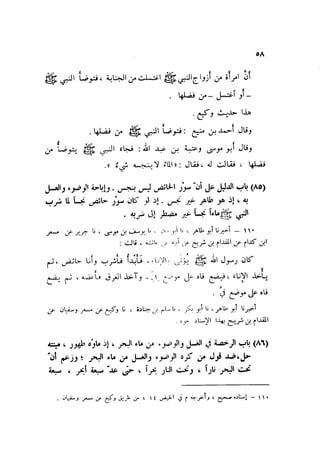 ٥٨
أن امرأة من أزواج النبي ﷺ اغتسلت من الجنابة ، فتوضأ النبي ﷺ
– أو اغتسل – من فضلها .
هذا حديث وكيع .
وقال أحمد بن منيع : فتوضأ النبي ﷺ من فضلها .
وقال أبو موسى وعتبة بن عبد الله : فجاء النبي ﷺ يتوضأ من
فضلها ، فقالت له ، فقال : « الماء لا ينجسه شيء » .
(٨٥) باب الدليل على أن سؤر الحائض ليس بنجس . وإباحة الوضوء والغسل
به ، إذ هو طاهر غير نجس . إذ لو كان سؤر حائض نجساً لما شرب
النبي ﷺ ماءاً نجساً غير مضطر إلى شربه .
١١٠ – أخبرنا أبو طاهر ، نا أبو بكر ، نا يوسف بن موسى ، نا جرير عن مسعر
ابن كدام عن المقدام بن شريح عن أبيه عن عائشة ، قالت :
كان رسول الله ﷺ يؤتى بالإناء . فأبدأ فأشرب وأنا حائض ، ثم
يأخذ الإناء ، فيضع فاه على موضع فيّ . وآخذ العرق فأعضه ، ثم يضع
فاه على موضع فيّ .
أخبرنا أبو طاهر ، نا أبو بكر ، نا سلم بن جنادة ، نا وكيع عن مسعر وسفيان عن
المقدام بن شريح بهذا الإسناد
(٨٦) باب الرخصة في الغسل والوضوء من ماء البحر ، إذ ماؤه طهور ، ميتته
حل ، ضد قول من كره الوضوء والغسل من ماء البحر ؛ وزعم أن
تحت البحر ناراً ، وتحت النار بحراً ، حتى عد سبعة أبحر ، سبعة
١١٠ – إسناده صحيح ، وأخرجه م في الحيض ١٤ ، من طريق وكيع عن مسعر وسفيان .